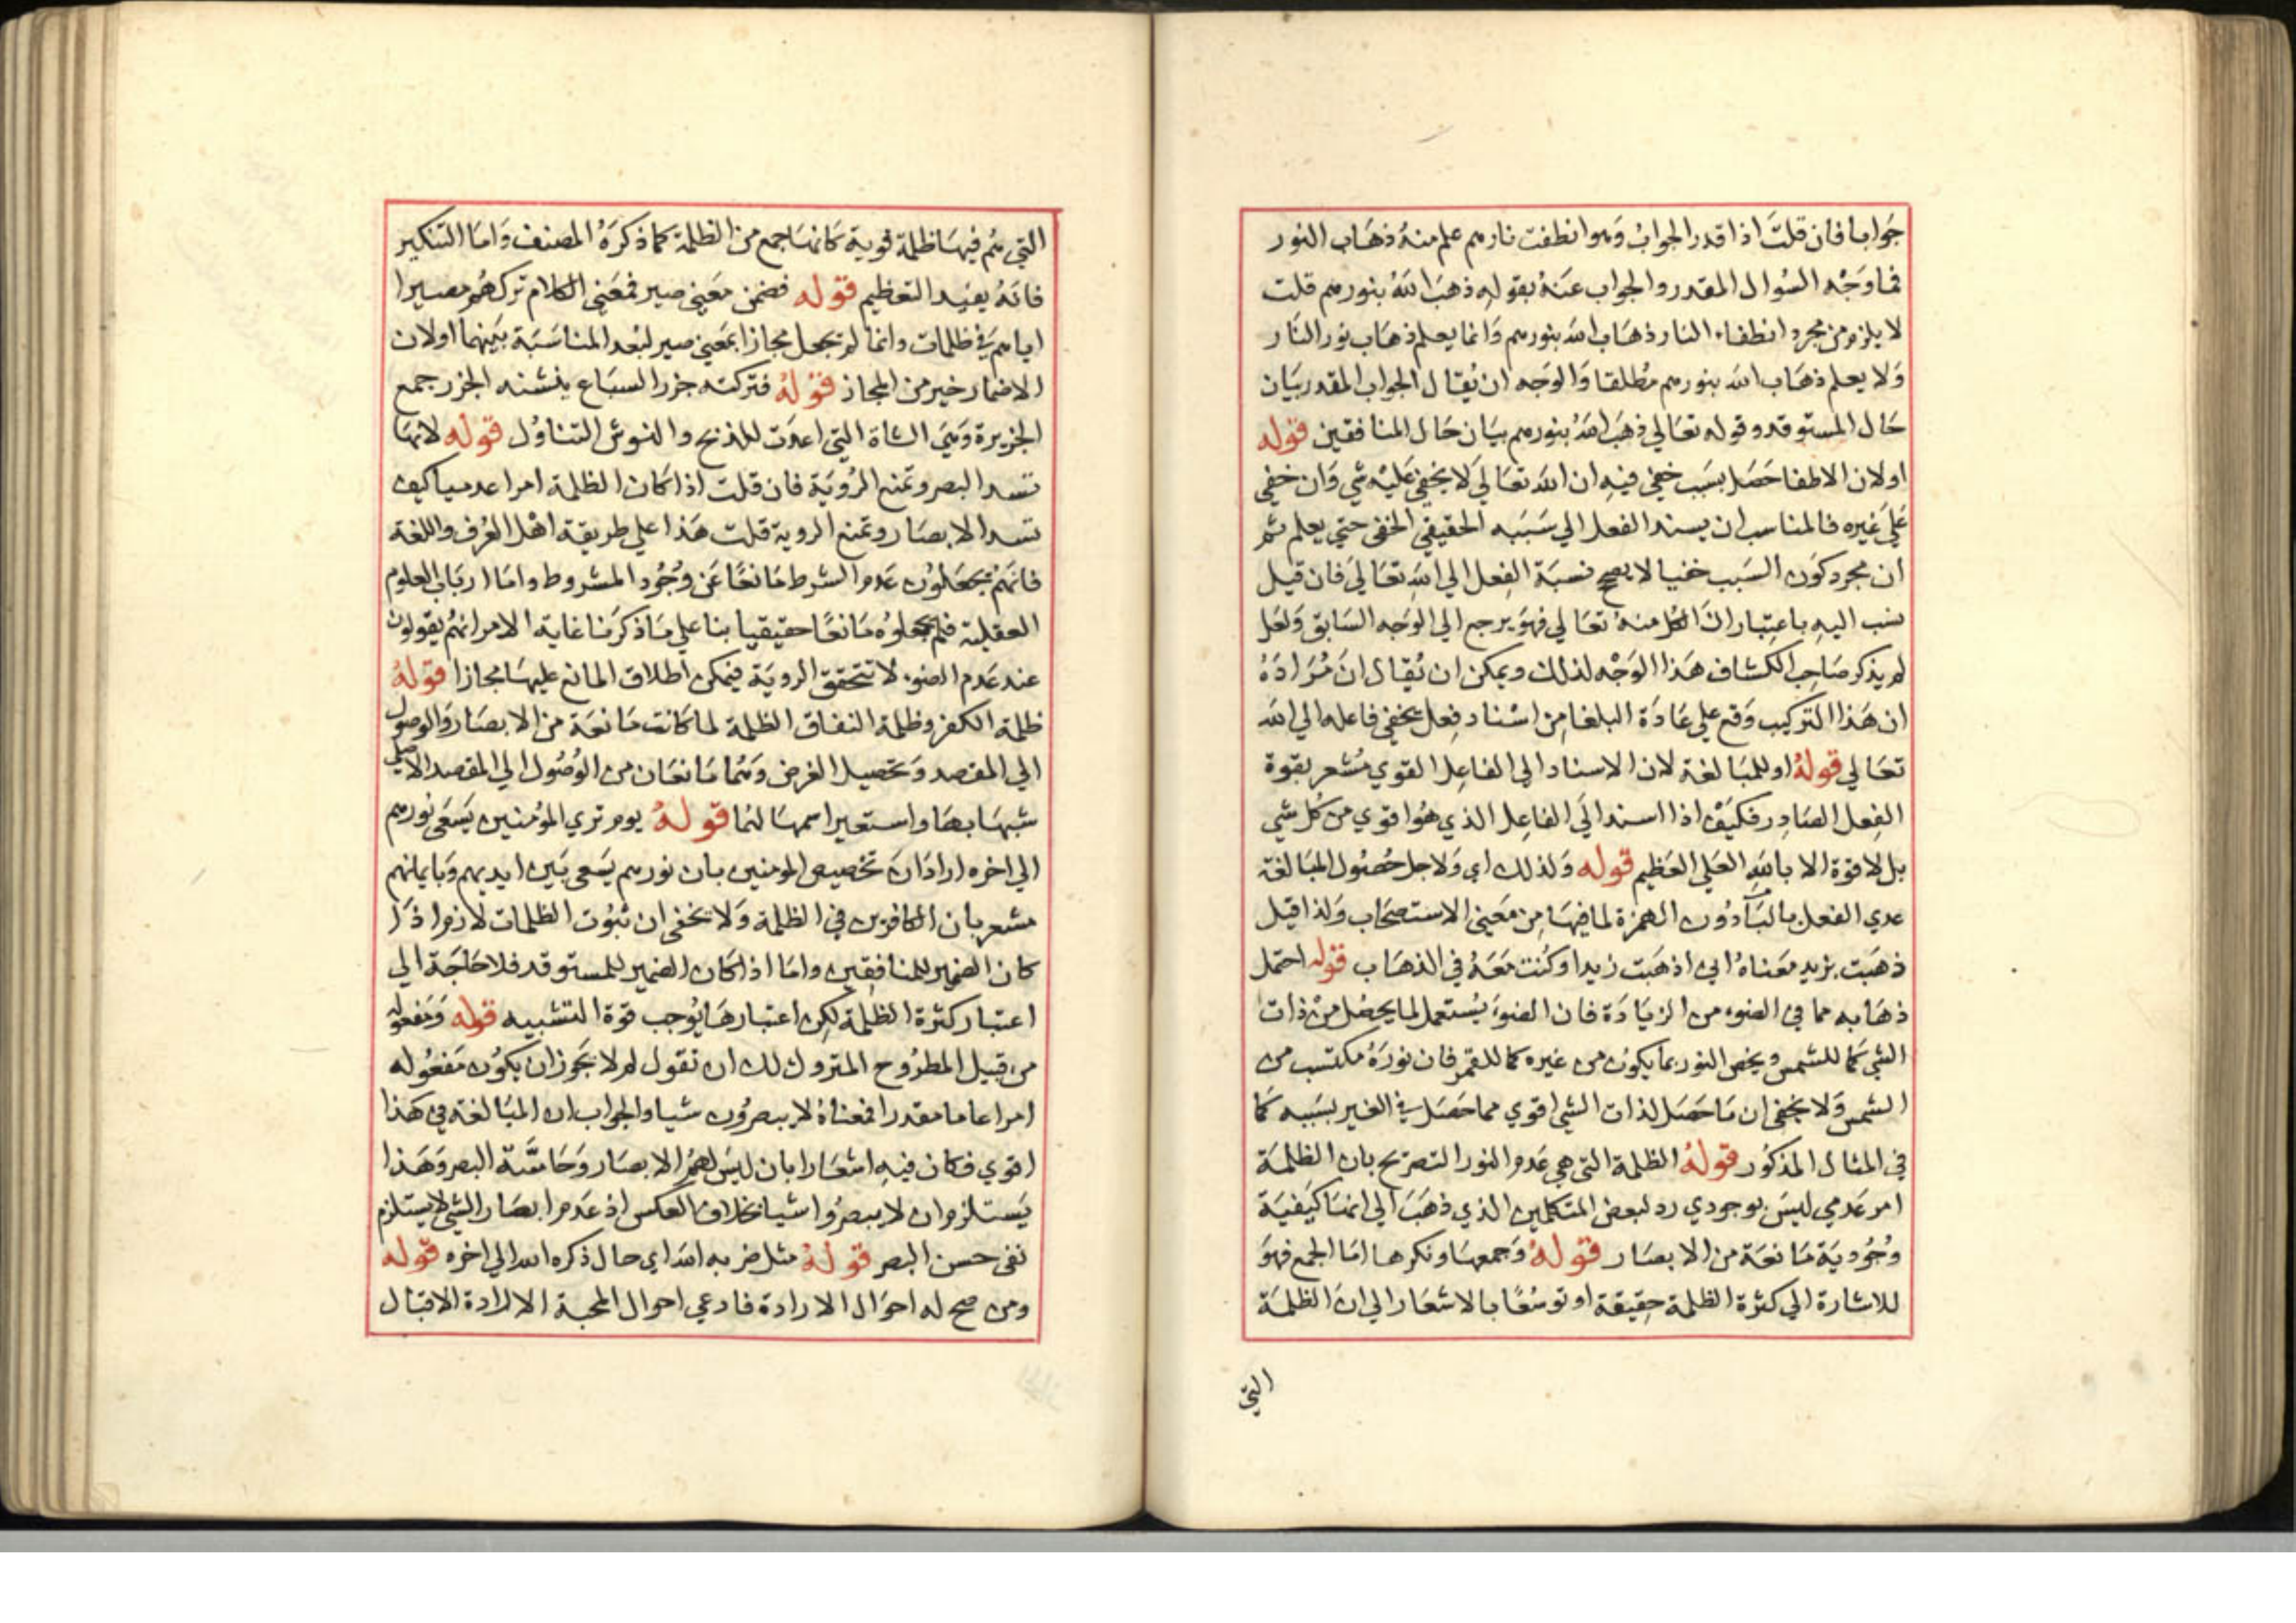 جَوابا فان قلتَ اذا قدر الجوابُ وَهوا نطفت نارهم علم منهُ ذهَاب النور
فما وَجْه السُوال المقدر والجواب عَنهُ بقولهِ ذهبَ اللهُ بنورهم قلت
لا يلزم من مجرد انطفاء النار ذهَاب الله بنورهم وَانما يعلم ذهَاب نور النَار
وَلا يعلم ذهَاب الله بنورهم مُطلقا وَالوَجه ان يُقال الجواب المقدر بيَان
حَال المستوقد وقوله تعَالي ذهبَ اللهُ بنورهم بيَان حَال المنافقين قوله
اولان الاطفا حَصَل بسَبب خفي فيهِ ان الله تعَالي لا يخفي عَليْه شي وَان خفي
عَلي غيره فالمناسب ان يسند الفعل الي سَبَبه الحقيقي الخفي حتي يعلم ثم
ان مجرد كَون السَبب خفيا لا يصح نسبَة الفِعل الي اللهِ تعَاليَ فان قيل
نسب اليهِ باعتِبار انَ الكل منهُ تعَالي فهوَ يرجع الي الوَجه السَابق وَلعَل
لم يذكر صَاحِب الكشاف هَذا الوَجْه لذلك ويمكن ان يُقال انَ مُرَادَهُ
ان هَذا التركيب وَقع علي عَادَة البلغا مِن اسْناد فِعل يخفي فاعله الي الله
تعَالي قولهُ او للمبَالغة لان الاسناد الي الفاعِل القوي مُشعر بقوة
الفِعل الصَادِر فكيَفْ اذا اسند الَي الفاعِل الذي هُوا قوي من كُل شي
بل لا قوة الا باللهِ العَلي العَظيم قوله وَلذلك اي وَلاجل حُصُول المبَالغة
عدي الفعل بالبَآ دُون الهمزة لما فيهَا مِن مَعَني الاستصحَاب وَلذا قيل
ذهبَت بزيد مَعناهُ اي اذهبَت زيدا وكُنت مَعَهُ في الذهَاب قوله احتمل
ذهَابه مما في الضوء من الزيَادَة فان الضوءَ يُستعمل لما يحصُل مِنْ ذات
الشي كَما للشمس ويخص النور بما يكوُن من غيره كما للقمر فان نورَهُ مكتسب من
الشمس وَلا يخفي ان مَا حَصَل لذات الشي اقوي مما حَصَل في الغير بسَببه كَما
في المثال المذكُور قولهُ الظلمة التي هي عَدم النور التصريح بان الظلمَة
امر عَدمي ليسَ بوجودي رد لبعض المتكلمين الذي ذهَبَ الي انهَا كيَفيَة
وجُوديَة مَانعَة من الابصَار قولهُ وَجمعهَا ونكرها امَا الجمع فهوَ
للاشارة الي كثرة الظلمة حقِيقة او توسُعًا بالاشعَار الي انَ الظلمَة
التي
التي هُم فيهَا ظلمة قوية كَانهَا جمع من الظلمة كما ذكرَهُ المصنف وَامَا التنكير
فانهُ يفيد التعَظيم قوله فضمن مَعَني صير فمَعَني الكلام تركَهُم مصيرا
اياهم في ظلمات وانما لم يجعل مجازا بمَعَني صير لبعُد المناسَبَة بَينهمَا اولان
الاضمار خير من المجاز قولهُ فتركته جزر السبَاع ينشنه الجزر جمع
الجزيرة وَهيَ الشاة التي اعدت للذبح والنوش التناوُل قوله لانهَا
تسد البصر وتمنع الرُويَة فان قلت اذا كَان الظلمة امرا عدميا كيف
تسد الابصَار وتمنع الروية قلت هَذا علي طريقة اهْل العُرف واللغة
فانهُم يجعَلوُن عَدم الشرط مَانعًا عَن وُجُود المشروط وامَا ارباب العلوم
العقلية فلم يجعلوُه مَانعًا حقيقيا بنا علي مَا ذكرَنا غاية الامر انهُم يقولون
عند عَدم الضوء لا تتحقق الرويَة فيمكن اطلاق المانع عليهَا مجازا قولهُ
ظلمة الكفر وظلمة النفاق الظلمة لما كَانت مَانعَة من الابصَار وَالوصول
الي المقصد وَتحصيل الغرض وَهُما مَانعَان من الوُصُول الي المقصد الاصلي
شبهَا بهَا واستعير اسمهَا لهُما قولهُ يوم تري المؤمنين يَسَعَي نورهم
الي اخره ارادَ انَ تخصيص المومنين بان نورهم يسَعي بَين ايديهم وَبايمانهم
مشعر بان الكافرين في الظلمة وَلا يخفي ان ثبوُت الظلمات لازم اذا
كان الضمير للمنافِقين وامَا اذا كان الضمير للمستوقد فلا حَاجَة الي
اعتبار كثرة الظلمة لكِن اعتبارهَا يُوجب قوة التشبيه قوله وَمَفعوله
من قبيل المطرُوح المتروك لك ان تقول لم لا يَجوز ان يكوُن مَفعُوله
امرا عاما مقدرا فمعناهُ لا يبصرُون شيا والجواب ان المبَالغة في هَذا
اقوي فكان فيهِ اشعَارا بان ليسَ لهمُ الابصَار وَحَاسَّة البصر وَهَذا
يَستلزم ان لا يبصرُوا شيا بخلاف العكس اذ عَدم ابصَار الشي لا يستلزم
نفي حسن البصر قولهُ مثل ضربه الله اي حال ذكره الله الي اخره قوله
ومن صح له احوَال الارادة فادعي احوال المحبة الارادة الاقبَال